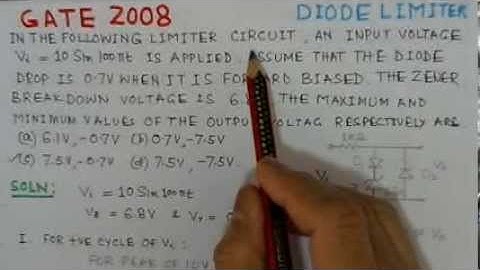 GATE 2008 DIODE LIMITER
IN THE FOLLOWING LIMITER CIRCUIT, AN INPUT VOLTAGE
Vi = 10 Sin 100πt IS APPLIED. ASSUME THAT THE DIODE
DROP IS 0.7V WHEN IT IS FORWARD BIASED. THE ZENER
BREAKDOWN VOLTAGE IS 6.8 THE MAXIMUM AND
MINIMUM VALUES OF THE OUTPUT VOLTAG RESPECTIVELY ARE
(a) 6.1V, -0.7V (b) 0.7V, -7.5V
(c) 7.5V, -0.7V (d) 7.5V, -7.5V.
1KΩ
D1
D2
SOLN: Vi = 10 Sin 100πt
Vz = 6.8V & Vγ =
I. FOR +VE CYCLE OF Vi :
FOR PEAK OF 10V